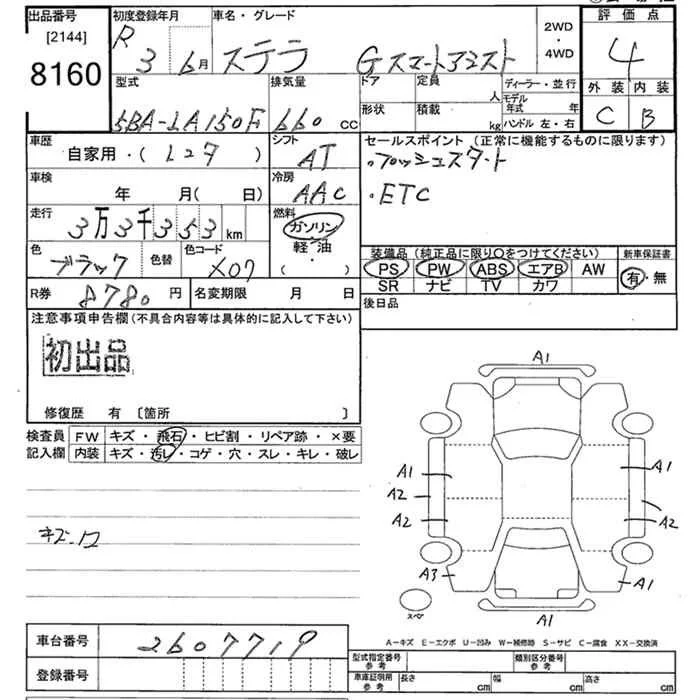 出品番号 初度登録年月 車名・グレード 2WD・4WD 評価点
[2144]
8160
R 3 6月 ステラ Gスマートアシスト 4
型式 排気量 ドア 定員 人 ディーラー・並行
5BA-LA150F 660 cc
形状 積載 kg モデル年式 年
ハンドル 左・右
外装 内装
C B
車歴 シフト セールスポイント(正常に機能するものに限ります)
自家用・( レンタ ) AT ・プッシュスタート
車検 冷房 ・ETC
年 月( 日) AAC
走行 燃料
3万3千353km ガソリン・軽油
・( )
色 色替 色コード
ブラック X07
装備品(純正品に限り〇をつけてください) 新車保証書
PS PW ABS エアB AW 有・無
SR ナビ TV カワ
R券 8780円 名変期限 月 日 後日品
注意事項申告欄(不具合内容等は具体的に記入して下さい)
初出品
修復歴 有 [箇所 ]
検査員 FW キズ・飛石・ヒビ割・リペア跡・×要
記入欄 内装 キズ・汚レ・コゲ・穴・スレ・キレ・破レ
A1
A1 A1
A2 A2
A2 A2
A3 A1
A1
スペア
A-キズ E-エクボ U-凹み W-補修跡 S-サビ C-腐食 XX-交換済
車台番号 2607719
登録番号
型式指定番号 参考 類別区分番号 参考
車庫証明用 参考 長さ cm 幅 cm 高さ cm